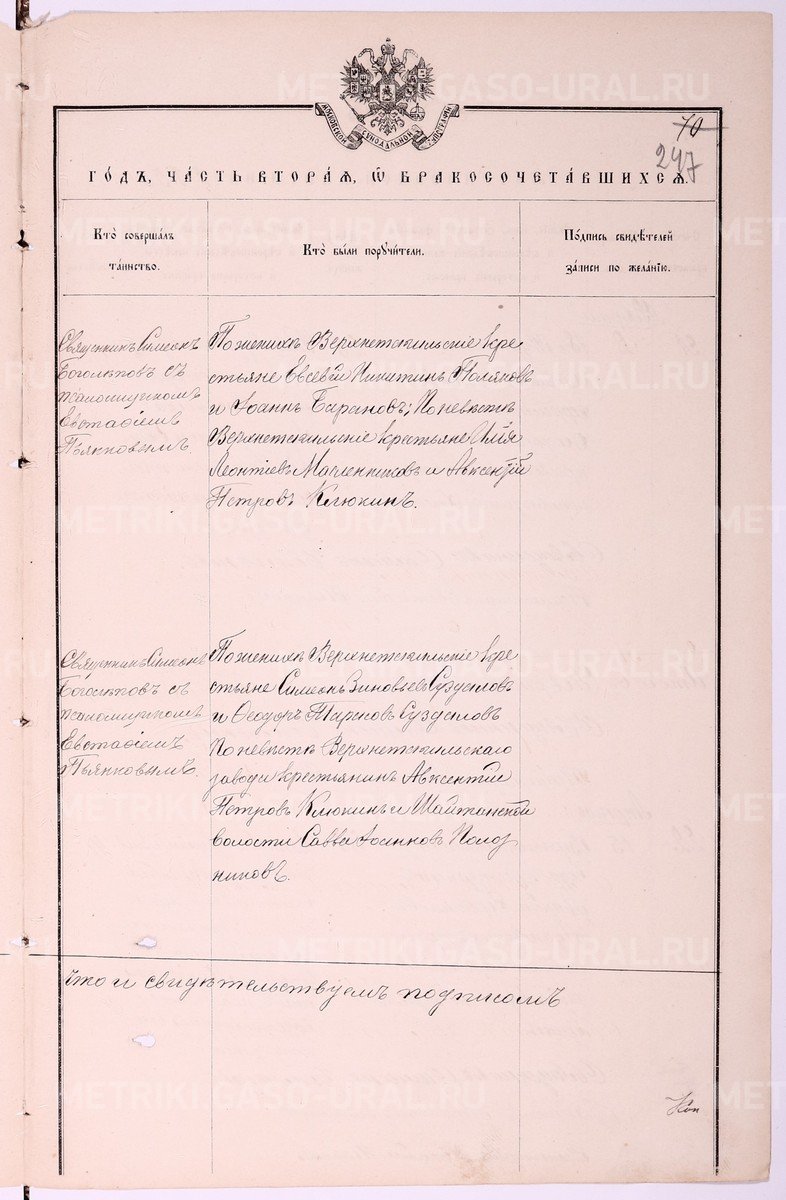 МОСКОВСКОЙ СѴНОДАЛЬНОЙ ТѴПОГРАФІИ
70
247
ГОДЪ, ЧАСТЬ ВТОРАЯ, Ѡ БРАКОСОЧЕТАВШИХСЯ.
Кто совершалъ
таинство.
Кто были поручители.
Подпись свидѣтелей
записи по желанію.
Священникъ Симеонъ
Боголѣповъ съ
псаломщикомъ
Евстафіемъ
Пьянковымъ.
По женихѣ Верхнетагильскіе кре
стьяне Евсевій Никитинъ Поляковъ
и Іоаннъ Барановъ; По невѣстѣ
Верхнетагильскіе крестьяне Илія
Леонтіевъ Масленниковъ и Авксентій
Петровъ Клюкинъ.
Священникъ Симеонъ
Боголѣповъ съ
псаломщикомъ
Евстафіемъ
Пьянковымъ.
По женихѣ Верхнетагильскіе кре
стьяне Симеонъ Зиновьевъ Суздаловъ
и Ѳеодоръ Марковъ Суздаловъ
По невѣстѣ Верхнетагильскаго
завода крестьянинъ Авксентій
Петровъ Клюкинъ и Шайтанской
волости Савва Іоанновъ Полоз
никовъ.
что и свидѣтельствуемъ подписомъ
Коп
METRIKI.GASO-URAL.RU